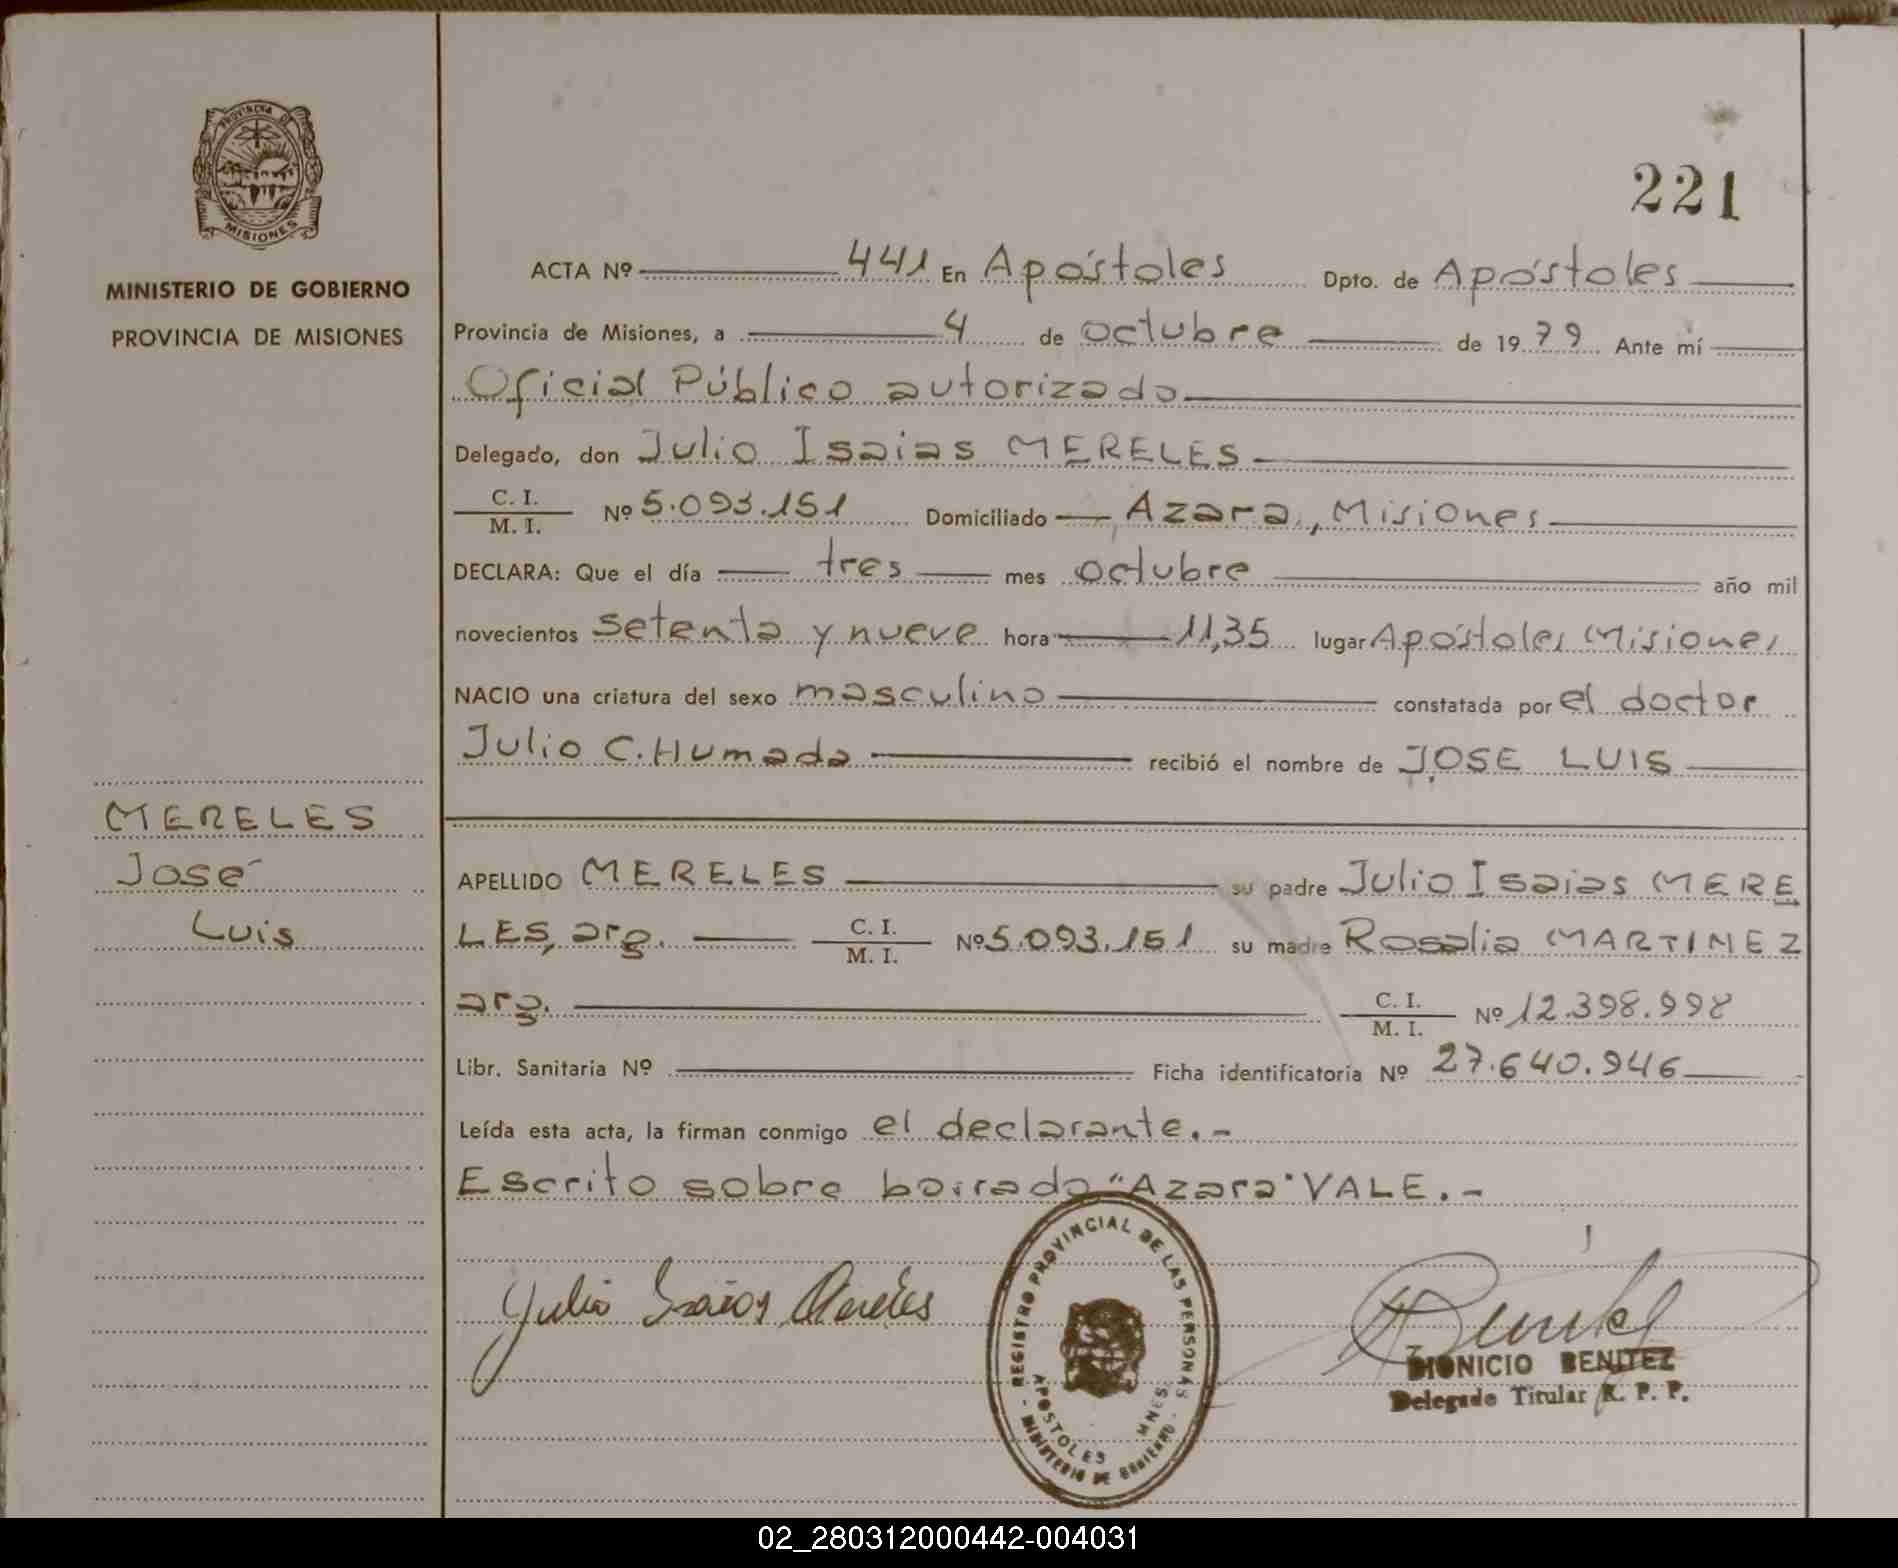 PROVINCIA DE
MISIONES
MINISTERIO DE GOBIERNO
PROVINCIA DE MISIONES
MERELES
José
Luis
221
ACTA Nº 441 En Apóstoles Dpto. de Apóstoles
Provincia de Misiones, a 4 de octubre de 1979 Ante mí
Oficial Público autorizado
Delegado, don Julio Isaias MERELES
C. I.
M. I. Nº 5.093.151 Domiciliado Azara, Misiones
DECLARA: Que el día tres mes octubre año mil
novecientos setenta y nueve hora 11,35 lugar Apóstoles Misiones
NACIO una criatura del sexo masculino constatada por el doctor
Julio C. Humada recibió el nombre de JOSE LUIS
APELLIDO MERELES su padre Julio Isaias MERE
LES, arg. C. I.
M. I. Nº 5.093.151 su madre Rosalia MARTINEZ
arg. C. I.
M. I. Nº 12.398.998
Libr. Sanitaria Nº Ficha identificatoria Nº 27.640.946
Leída esta acta, la firman conmigo el declarante.-
Escrito sobre borrado "Azara" VALE.-
Julio Isaias Mereles
REGISTRO PROVINCIAL DE LAS PERSONAS
APOSTOLES MNES.
- MINISTERIO DE GOBIERNO -
DIONICIO BENITEZ
Delegado Titular R. P. P.
02_280312000442-004031